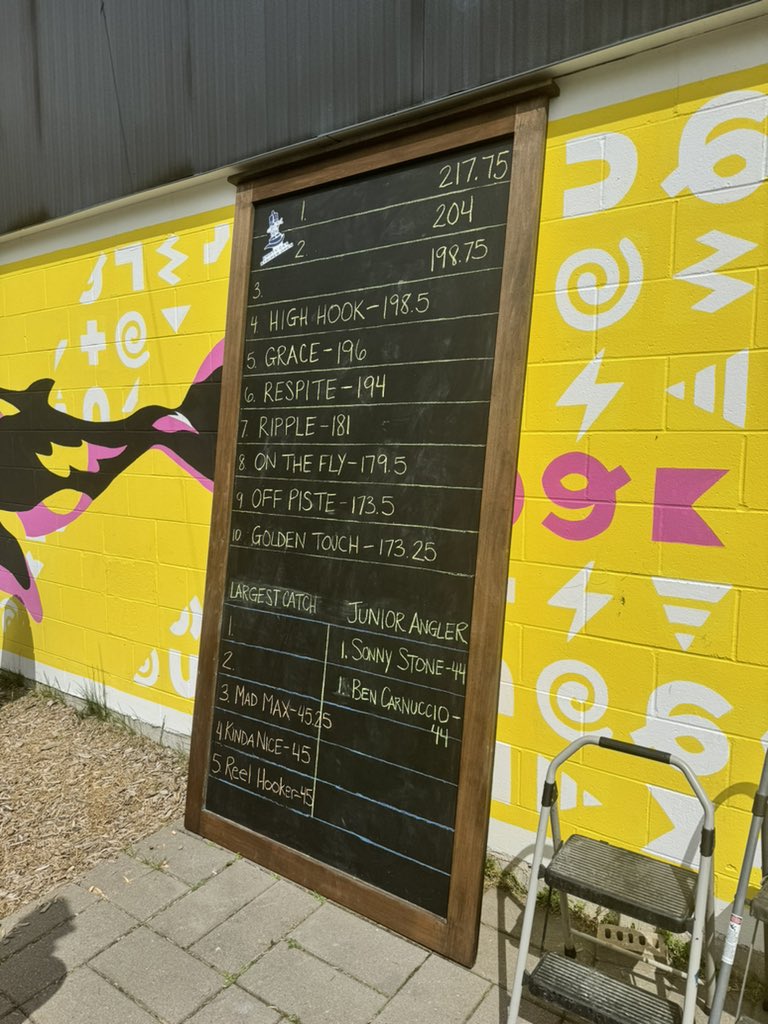 217.75
1.
204
2.
198.75
3.
4. HIGH HOOK-198.5
5. GRACE-196
6. RESPITE-194
7. RIPPLE-181
8 ON THE FLY-179.5
9 OFF PISTE-173.5
10 GOLDEN TOUCH-173.25
LARGEST CATCH
1.
2.
3 MAD MAX-45.25
4 KINDA NICE-45
5 Reel Hooker-45
JUNIOR ANGLER
1. SONNY STONE-44
1. BEN CARNUCCIO-
44